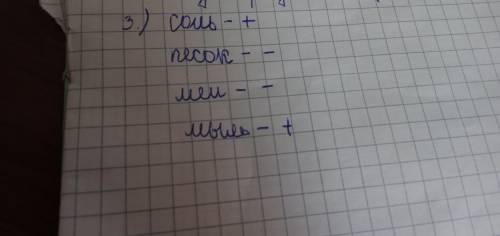 3.) соль - +
песок - -
мел - -
мыль - +